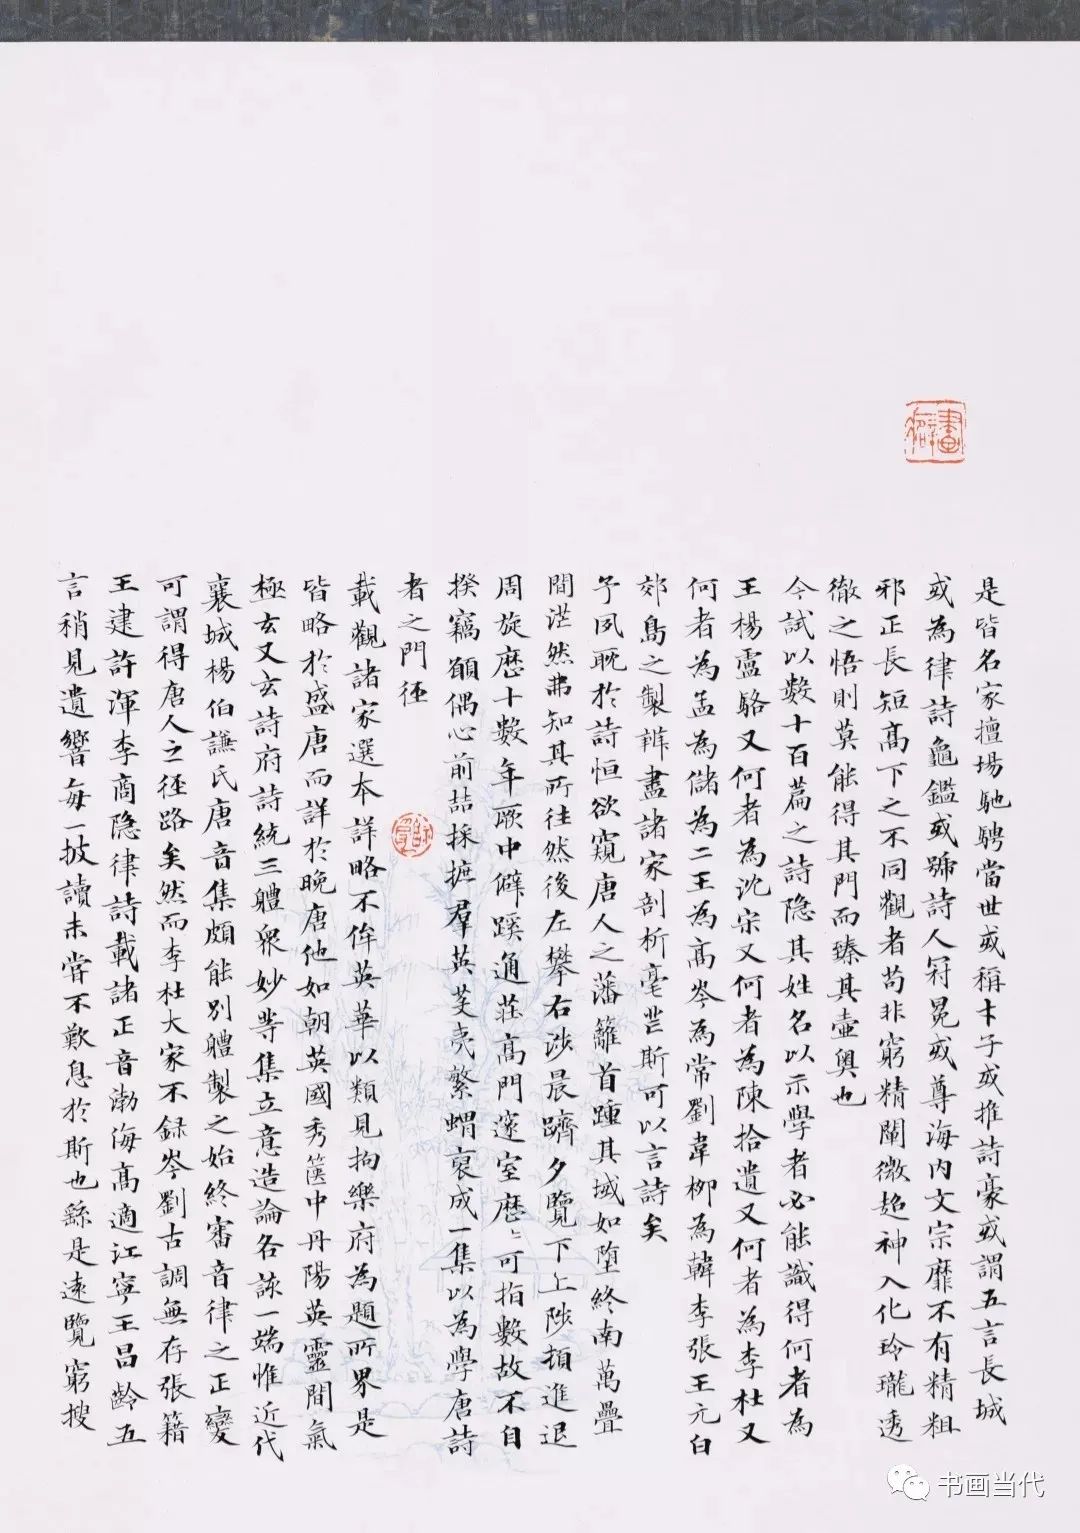 畫癖
是皆名家擅場馳騁當世或稱才子或推詩豪或謂五言長城
或為律詩龜鑑或號詩人冠冕或尊海內文宗靡不有精粗
邪正長短高下之不同觀者苟非窮精闡微超神入化玲瓏透
徹之悟則莫能得其門而臻其壼奧也
今試以數十百篇之詩隱其姓名以示學者必能識得何者為
王楊盧駱又何者為沈宋又何者為陳拾遺又何者為李杜又
何者為孟為儲為二王為高岑為常劉韋柳為韓李張王元白
郊島之製辨盡諸家剖析毫芒斯可以言詩矣
予夙耽於詩恒欲窺唐人之藩籬首踵其域如墮終南萬疊
間茫然弗知其所往然後左攀右涉晨躋夕覽下上陟頓進退
周旋歷十數年厥中僻蹊通莊高門邃室歷〻可指數故不自
揆竊願偶心前喆採摭羣英芟夷繁蝟裒成一集以為學唐詩
者之門徑
載觀諸家選本詳略不侔英華以類見拘樂府為題所界是
皆略於盛唐而詳於晚唐他如朝英國秀篋中丹陽英靈間氣
極玄又玄詩府詩統三體眾妙等集立意造論各詼一端惟近代
襄城楊伯謙氏唐音集頗能別體製之始終審音律之正變
可謂得唐人之徑路矣然而李杜大家不録岑劉古調無存張籍
王建許渾李商隱律詩載諸正音渤海高適江寧王昌齡五
言稍見遺響每一披讀未嘗不歎息於斯也繇是遠覽窮搜
书画当代